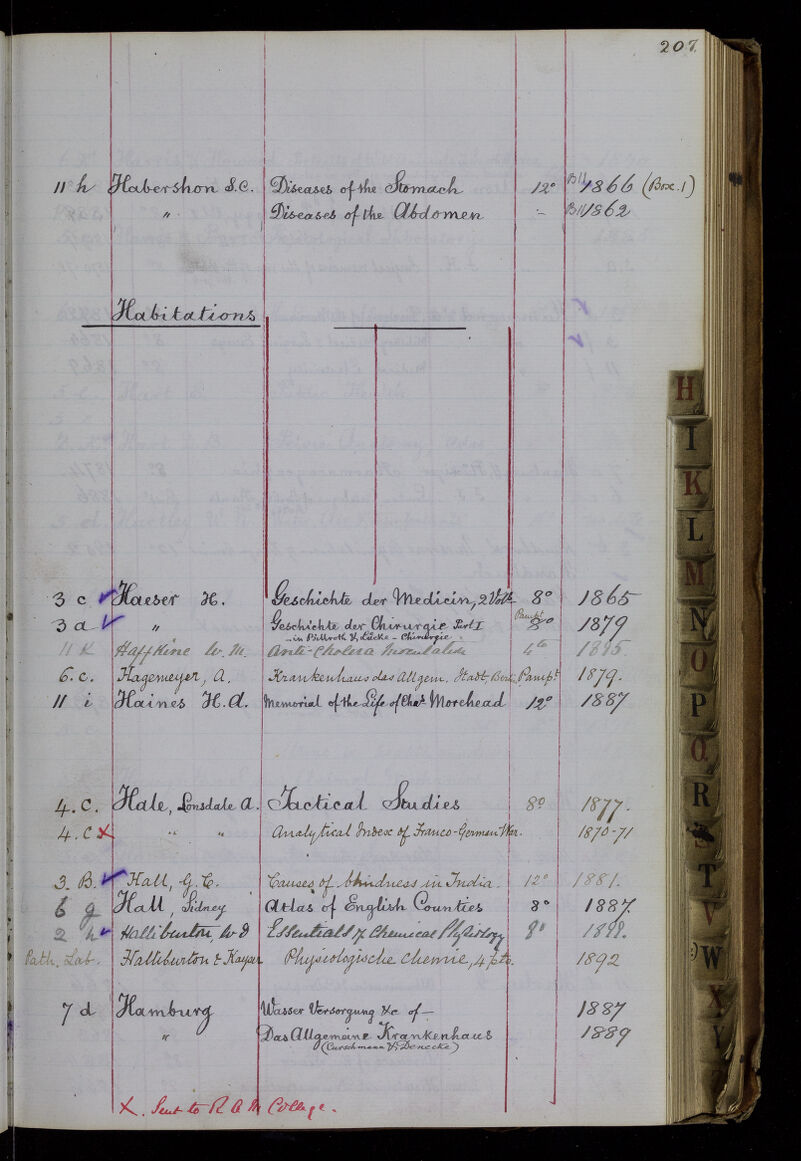 207.
11 h Habershon S.C. Diseases of the Stomach 12° B11 1866 (Box.1)
" Diseases of the Abdomen - B11 1862
Habitations
3 c Haeser H. Geschichte der Medicin, 2 Vols 8° 1865
3 a " Geschichte der Chirurgie Part I Pampt 8° 1879
- in Billroth & Lücke - Chirurgie
11 k Haffkine W. M. Anti-Cholera Inoculation 4to 1895.
6. c. Hagemeyer, A. Krankenhaus das Allgem. Stadt, Berl. Pampt 1879.
11 i Haines H. A. Memorial of the Life of Chas Morehead 12° 1887
4. C. Hale, Lonsdale A. Tactical Studies 8° 1877.
4. C x " " Analytical Index of Franco-German War. 1870-71
3. B. Hall, G. C. Causes of blindness in India. 12° 1881.
6 g Hall, Sidney Atlas of English Counties 8° 1887.
2 h Halliburton, W D Essentials of Chemical Physiology 8° 1899.
Path. Lab. Halliburton & Kayser Physiologische Chemie, 4 pts. 1892
7 d Hamburg Wasser Versorgung &c of — 1887
" Das Allgemeine Krankenhaus 1889
(Curschmann & Denecke)
X. Sent to R A M College.
H
I
K
L
M
N
O
P
Q
R
T
V
W
X
Y